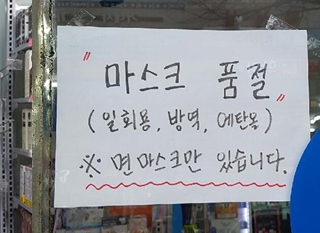 "마스크 품절"
(일회용, 방역, 에탄올)
※ 면마스크만 있습니다.